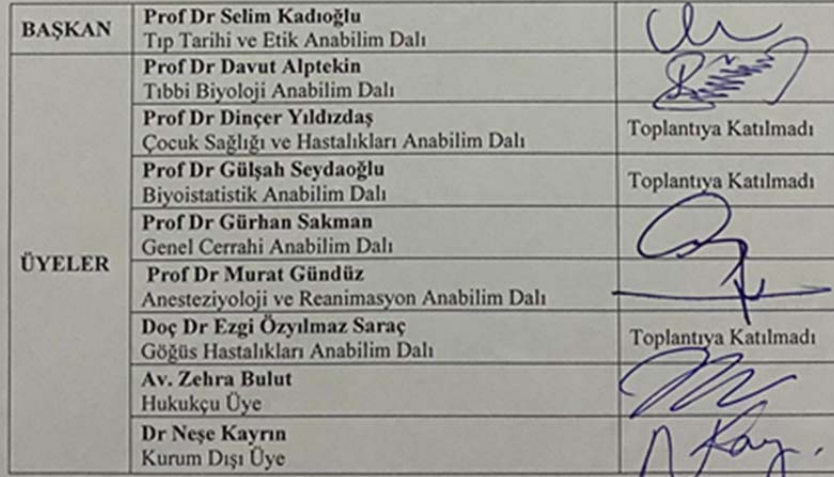 BAŞKAN
Prof Dr Selim Kadıoğlu
Tıp Tarihi ve Etik Anabilim Dalı
ÜYELER
Prof Dr Davut Alptekin
Tıbbi Biyoloji Anabilim Dalı
Prof Dr Dinçer Yıldızdaş
Çocuk Sağlığı ve Hastalıkları Anabilim Dalı
Toplantıya Katılmadı
Prof Dr Gülşah Seydaoğlu
Biyoistatistik Anabilim Dalı
Toplantıya Katılmadı
Prof Dr Gürhan Sakman
Genel Cerrahi Anabilim Dalı
Prof Dr Murat Gündüz
Anesteziyoloji ve Reanimasyon Anabilim Dalı
Doç Dr Ezgi Özyılmaz Saraç
Göğüs Hastalıkları Anabilim Dalı
Toplantıya Katılmadı
Av. Zehra Bulut
Hukukçu Üye
Dr Neşe Kayrın
Kurum Dışı Üye